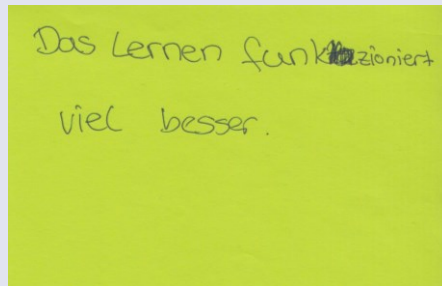 Das Lernen funkzioniert
viel besser.